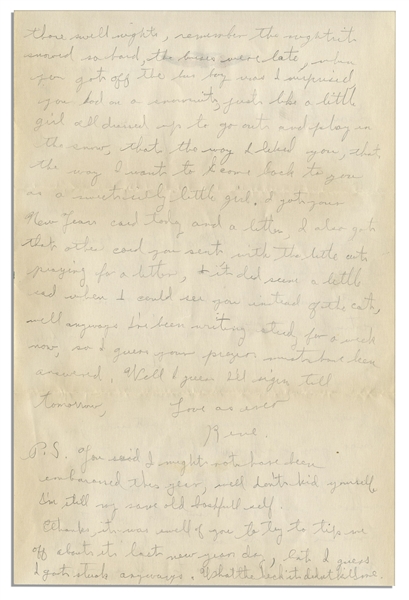 those swell nights, remember the night it
snowed so hard, the buses were late, when
you got off the bus boy was I surprised,
you had on a snowsuit, just like a little
girl all dressed up to go out and play in
the snow, that's the way I liked you, that
the way I want to come back to you
as a little girl. I got your
New Years card today and a letter, I also got
that other card you sent with the little cats
praying for a letter, it did seem a little
odd when I could see you instead of the cats,
well anyways I've been writing steady for a week
now, so I guess your prayers must have been
answered. Well I guess I'll sign till
tomorrow, Love as ever
Rene.
P.S. You said I might not have been
embarrassed this year, well don't kid yourself
I'm still my same old bashful self.
Thanks, it was swell of you to try to tip me
off about its last new year day, but I guess
I got stuck anyways. What the heck it didn't kill me.